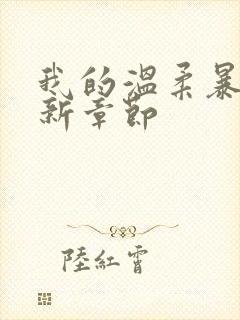 我的溫柔暴
新章節
陸紅霄